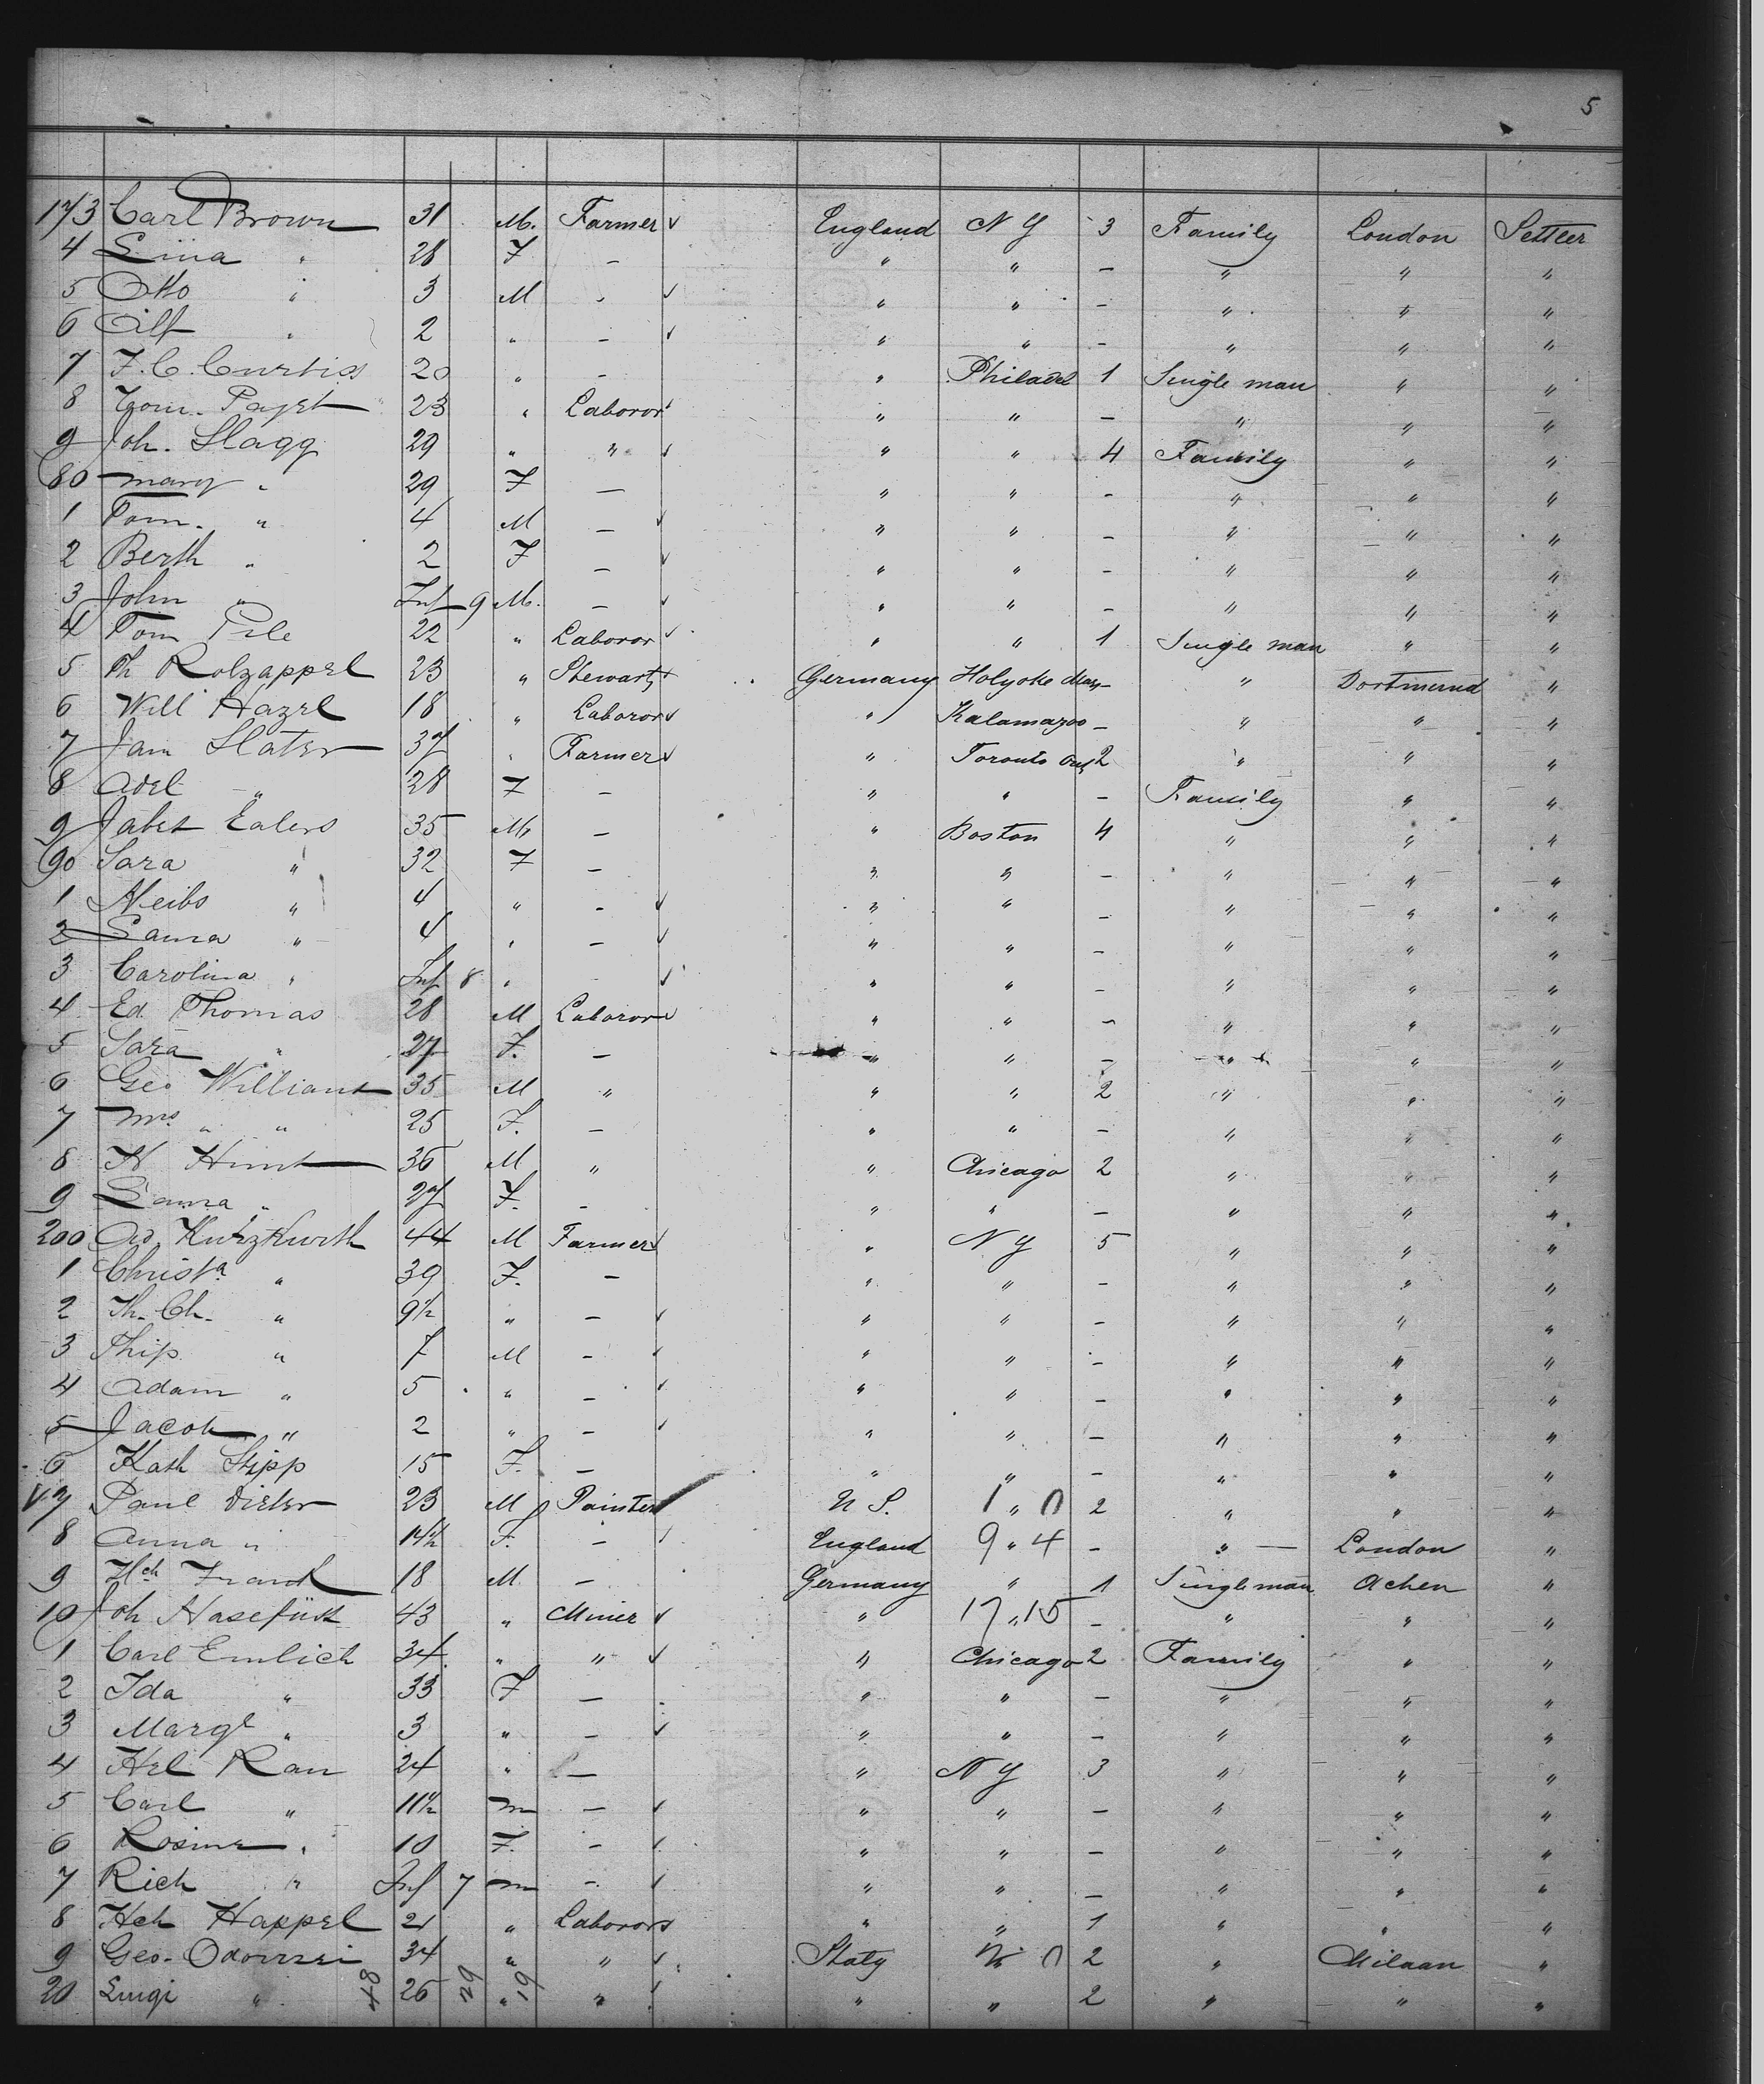 5
173 Carl Brown 31 M. Farmer ✓ England N Y 3 Family London Settler
4 Lina " 28 F — " " — " " "
5 Otto " 3 M - ✓ " " — " " "
6 " 2 " — ✓ " " — " " "
7 F. C. Curtiss 20 " — " Philadel 1 Single man " "
8 Tom. Paget 23 " Laboror ✓ " " — " " "
9 Joh. Slagg 29 " " ✓ " " 4 Family " "
80 Mary " 29 F — " " — " " "
1 Tom. " 4 M — ✓ " " — " " "
2 Berth " 2 F — ✓ " " — " " "
3 John " Inf 9 M. — ✓ " " — " " "
4 Tom Pile 22 " Laboror ✓ " " 1 Single man " "
5 Th Rolzappel 23 " Stewart ✓ Germany Holyoke Mass — " Dortmund "
6 Will Hazel 18 " Laboror ✓ " Kalamazoo — " " "
7 Jam Slater 37 " Farmer ✓ " Toronto Ont 2 " " "
8 Adel " 28 F — " " — Family " "
9 Jabet Ealers 35 M — " Boston 4 " " "
90 Sara " 32 F — " " — " " "
1 " 4 " — ✓ " " — " " "
2 Laura " 4 " — ✓ " " — " " "
3 Carolina " Inf 8 " - ✓ " " — " " "
4 Ed. Thomas 28 M Laboror ✓ " " — " " "
5 Sara " 27 F. — " " — " " "
6 Geo Williams 35 M " " " 2 " " "
7 Mrs. " " 25 F. — " " — " " "
8 N Hunt 36 M " " Chicago 2 " " "
9 Laura " 27 F. — " " — " " "
200 Ad. 44 M Farmer ✓ " N Y 5 " " "
1 Christa " 39 F. — " " — " " "
2 Th. Ch. " 9½ " — ✓ " " — " " "
3 " 7 M — ✓ " " — " " "
4 Adam " 5 " — ✓ " " — " " "
5 Jacob " 2 " — ✓ " " — " " "
6 Kath Stipp 15 F. — " " — " " "
✓ 7 Paul Dieter 23 M Painter ✓ U S. " 2 " " "
8 Anna " F. — ✓ England 9 " 4 — " — London "
9 Hch Frank 18 M — Germany " 1 Single man Achen "
10 Joh Hasefüst 43 " Miner ✓ " 17 " 15 — " " "
1 Carl Emlich 34 " " ✓ " Chicago 2 Family " "
2 Ida " 33 F — " " — " " "
3 Margt " 3 " — ✓ " " — " " "
4 Hel Rau 24 " — " N Y 3 " " "
5 Carl " 11½ m — ✓ " " — " " "
6 Rosine " 10 F. — ✓ " " — " " "
7 Rich " Inf 7 m — ✓ " " — " " "
8 Hch Happel 21 " Laboror ✓ " " 1 " " "
9 Geo. 34 " " ✓ Italy 2 " Milaan "
20 Luigi " 26 " " ✓ " " 2 " " "
48 29 19